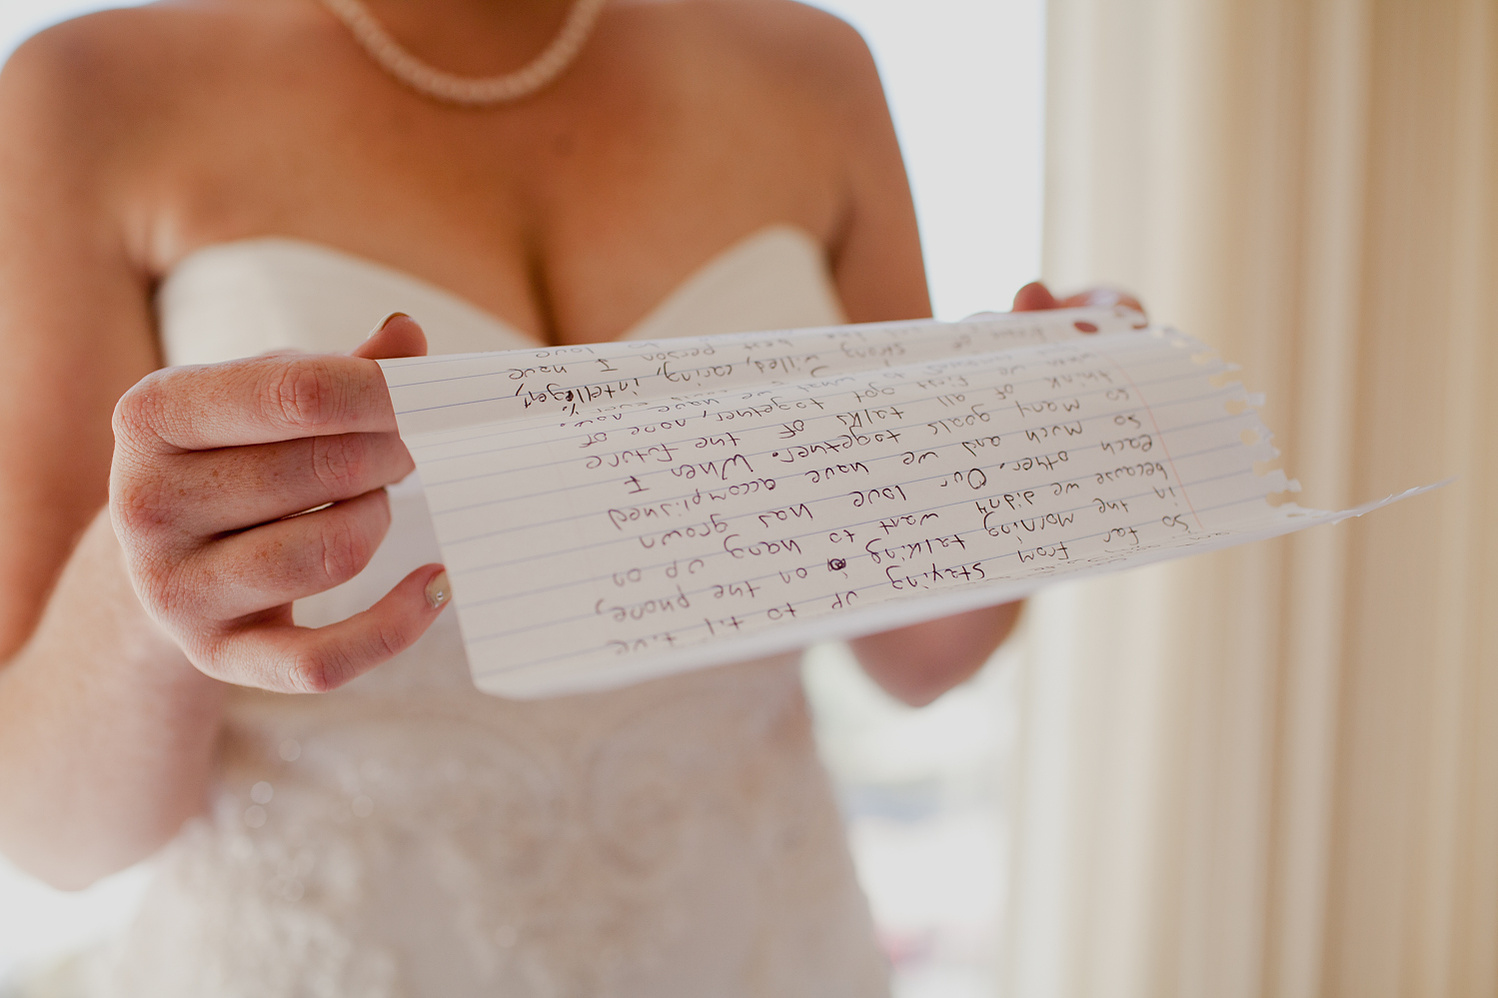 So far from staying up to til five
in the morning talking on the phone,
because we didn't want to hang up on
each other. Our love has grown
so much and we have accomplished
so many goals together. When I
think of all talks of the future
when we first got together, none of
to what we have now.
strong willed, caring, intelligent,
best person I have
to love